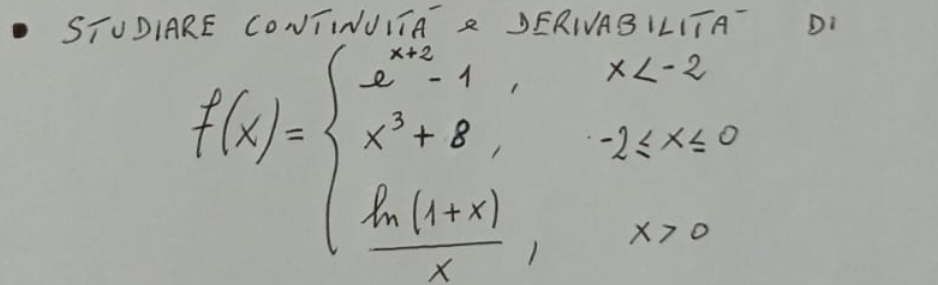 • STUDIARE CONTINUITÀ e DERIVABILITÀ DI
f(x) = { e^{x+2} - 1 , x < -2
x³ + 8 , -2 ≤ x ≤ 0
ln (1+x) / x , x > 0